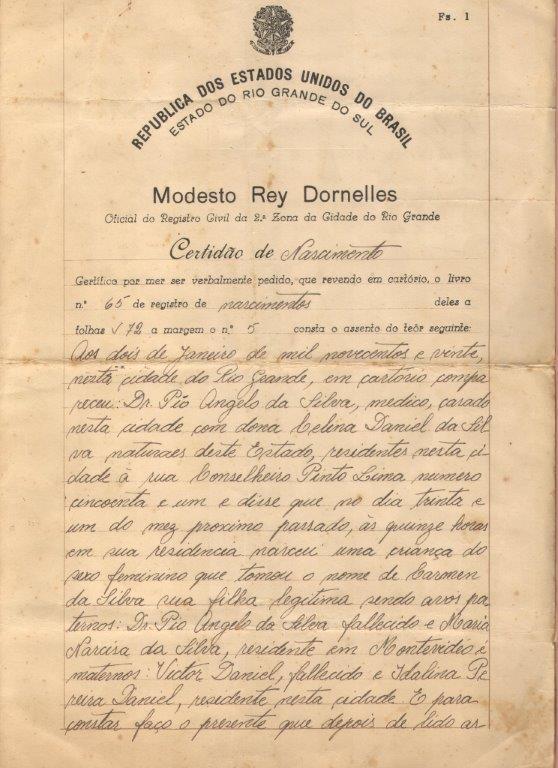 Fs. 1
REPUBLICA DOS ESTADOS UNIDOS DO BRASIL
ESTADO DO RIO GRANDE DO SUL
Modesto Rey Dornelles
Oficial do Registro Civil da 2.ª Zona da Cidade do Rio Grande
Certidão de Nascimento
Certifico por mer ser verbalmente pedido, que revendo em cartório, o livro
n.º 65 de registro de nascimentos deles a
folhas v 72 a margem o n.º 5 consta o assento do teôr seguinte:
Aos dois de Janeiro de mil novecentos e vinte,
nesta cidade do Rio Grande, em cartório compa
receu: Dr. Pio Angelo da Silva, medico, casado
nesta cidade com dona Celina Daniel da Sil
va naturaes deste Estado, residentes nesta ci-
dade à rua Conselheiro Pinto Lima numero
cincoenta e um e disse que no dia trinta e
um do mez proximo passado, às quinze horas
em sua residencia nasceu uma criança do
sexo feminino que tomou o nome de Carmen
da Silva sua filha legitima sendo avos pa
ternos: Dr. Pio Angelo da Silva fallecido e Maria
Narcisa da Silva, residente em Montevidéo e
maternos: Victor Daniel, fallecido e Idalina Pe
reira Daniel, residente nesta cidade. E para
constar faço o presente que depois de lido as